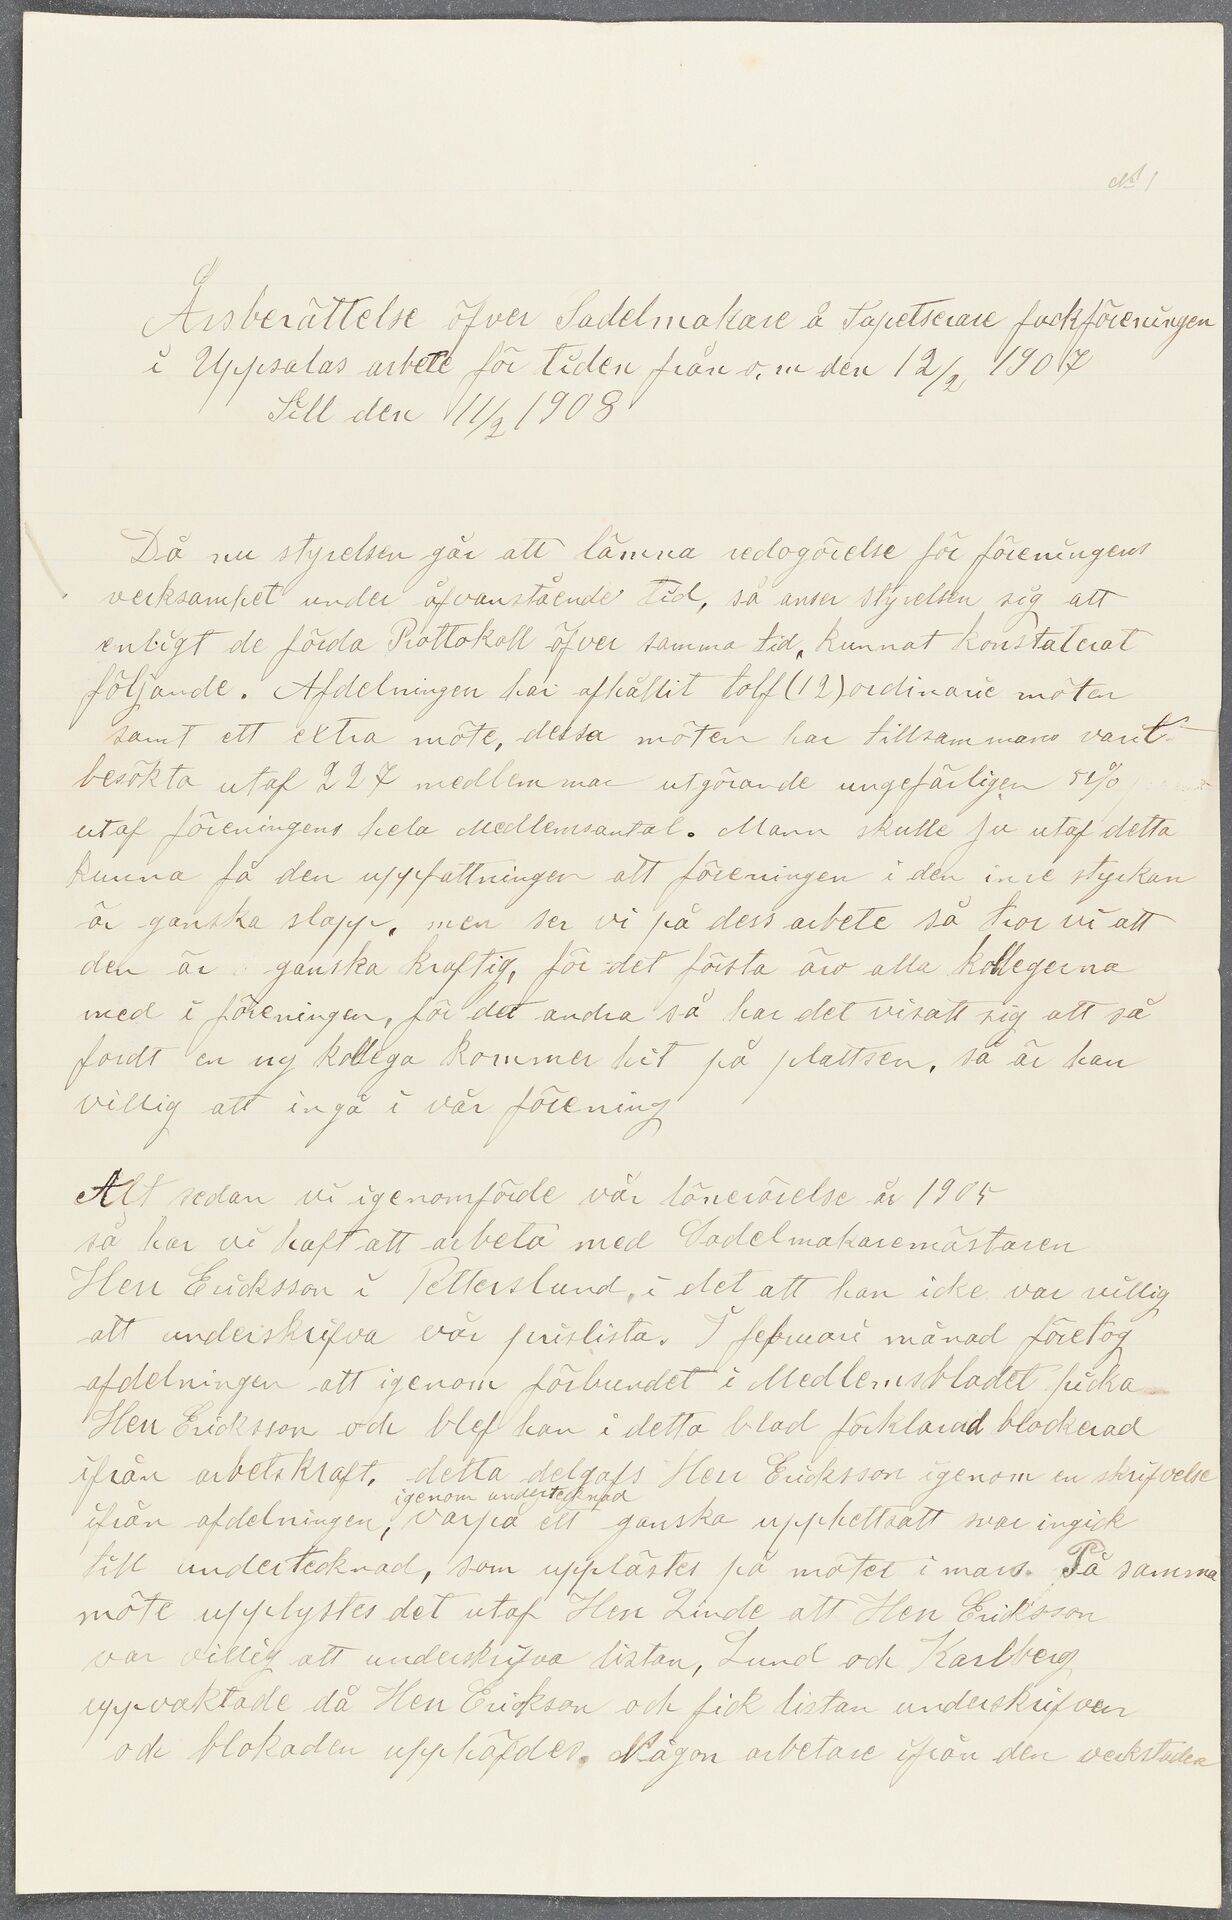 № 1
Årsberättelse öfver Sadelmakare å Tapetserare fackföreningen
i Uppsalas arbete för tiden från o. m den 12/2 1907
Till den 11/2 1908
Då nu styrelsen går att lämna redogörelse för föreningens
verksamhet under åfvanstående tid, så anser styrelsen sig att
enligt de förda Prottokoll öfver samma tid, kunnat konstaterat
följande. Afdelningen har afhållit tolf (12) ordinarie möten
samt ett extra möte, dessa möten har tillsammans varit
besökta utaf 227 medlemmar utgörande ungefärligen 51%
utaf föreningens hela Medlemsantal. Mann skulle ju utaf detta
kunna få den uppfattningen att föreningen i den inre styrkan
är ganska slapp, men ser vi på dess arbete så tror vi att
den är ganska kraftig, för det första äro alla kollegerna
med i föreningen, för det andra så har det visatt sig att så
fordt en ny kollega kommer hit på plattsen, så är han
villig att ingå i vår förening
Alt sedan vi igenomförde vår lönerörelse år 1905
så har vi haft att arbeta med Sadelmakaremästaren
Herr Ericksson i Petterslund, i det att han icke var villig
att underskrifva vår prislista. I februari månad företog
afdelningen att igenom förbundet i Medlemsbladet picka
Herr Ericksson och blef han i detta blad förklarad blockerad
ifrån arbetskraft, detta delgafs Herr Ericksson igenom en skrifvelse
igenom undertecknad
ifrån afdelningen, varpå ett ganska upphettsatt svar ingick
till undertecknad, som upplästes på mötet i mars. På samma
möte upplystes det utaf Herr Linde att Herr Eriksson
var villig att underskrifva listan, Lund och Karlberg
uppvaktade då Herr Erickson och fick listan underskrifven
och blokaden upphäfdes. Någon arbetare ifrån den verkstaden